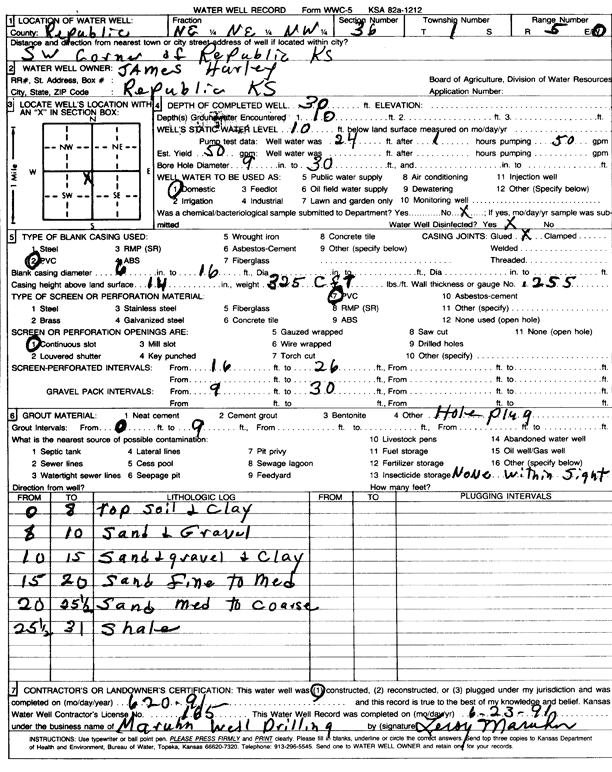 WATER WELL RECORD Form WWC-5 KSA 82a-1212
1 LOCATION OF WATER WELL: Fraction Section Number Township Number Range Number
County: Republic NE ¼ NE ¼ NW ¼ 36 T 1 S R 5 E/W
Distance and direction from nearest town or city street address of well if located within city?
SW Corner of Republic KS
2 WATER WELL OWNER: JAmes Hurley
RR#, St. Address, Box # : Board of Agriculture, Division of Water Resources
City, State, ZIP Code : Republic KS Application Number:
3 LOCATE WELL'S LOCATION WITH AN "X" IN SECTION BOX:
N
NW NE
W X E
SW SE
S
1 Mile
4 DEPTH OF COMPLETED WELL 30 ft. ELEVATION:
Depth(s) Groundwater Encountered 1. 10 ft. 2. ft. 3. ft.
WELL'S STATIC WATER LEVEL 10 ft. below land surface measured on mo/day/yr
Pump test data: Well water was 24 ft. after 1 hours pumping 50 gpm
Est. Yield 50 gpm: Well water was ft. after hours pumping gpm
Bore Hole Diameter 9 in. to 30 ft., and in. to ft.
WELL WATER TO BE USED AS: 5 Public water supply 8 Air conditioning 11 Injection well
1 Domestic 3 Feedlot 6 Oil field water supply 9 Dewatering 12 Other (Specify below)
2 Irrigation 4 Industrial 7 Lawn and garden only 10 Monitoring well
Was a chemical/bacteriological sample submitted to Department? Yes No X ; If yes, mo/day/yr sample was submitted
Water Well Disinfected? Yes X No
5 TYPE OF BLANK CASING USED: 5 Wrought iron 8 Concrete tile CASING JOINTS: Glued X Clamped
1 Steel 3 RMP (SR) 6 Asbestos-Cement 9 Other (specify below) Welded
2 PVC 4 ABS 7 Fiberglass Threaded
Blank casing diameter 6 in. to 16 ft., Dia in. to ft., Dia in. to ft.
Casing height above land surface 14 in., weight 325 C ft lbs./ft. Wall thickness or gauge No. .255
TYPE OF SCREEN OR PERFORATION MATERIAL: 7 PVC 10 Asbestos-cement
1 Steel 3 Stainless steel 5 Fiberglass 8 RMP (SR) 11 Other (specify)
2 Brass 4 Galvanized steel 6 Concrete tile 9 ABS 12 None used (open hole)
SCREEN OR PERFORATION OPENINGS ARE: 5 Gauzed wrapped 8 Saw cut 11 None (open hole)
1 Continuous slot 3 Mill slot 6 Wire wrapped 9 Drilled holes
2 Louvered shutter 4 Key punched 7 Torch cut 10 Other (specify)
SCREEN-PERFORATED INTERVALS: From 16 ft. to 26 ft., From ft. to ft.
From ft. to ft., From ft. to ft.
GRAVEL PACK INTERVALS: From 9 ft. to 30 ft., From ft. to ft.
From ft. to ft., From ft. to ft.
6 GROUT MATERIAL: 1 Neat cement 2 Cement grout 3 Bentonite 4 Other Hole Plug
Grout Intervals: From 0 ft. to 9 ft., From ft. to ft., From ft. to ft.
What is the nearest source of possible contamination: 10 Livestock pens 14 Abandoned water well
1 Septic tank 4 Lateral lines 7 Pit privy 11 Fuel storage 15 Oil well/Gas well
2 Sewer lines 5 Cess pool 8 Sewage lagoon 12 Fertilizer storage 16 Other (specify below)
3 Watertight sewer lines 6 Seepage pit 9 Feedyard 13 Insecticide storage None within Sight
Direction from well? How many feet?
FROM TO LITHOLOGIC LOG FROM TO PLUGGING INTERVALS
0 8 top soil & Clay
8 10 Sand & Gravel
10 15 Sand & gravel & Clay
15 20 Sand fine to Med
20 25½ Sand med to coarse
25½ 31 Shale
7 CONTRACTOR'S OR LANDOWNER'S CERTIFICATION: This water well was (1) constructed, (2) reconstructed, or (3) plugged under my jurisdiction and was
completed on (mo/day/year) and this record is true to the best of my knowledge and belief. Kansas
Water Well Contractor's License No. 165 This Water Well Record was completed on (mo/day/yr)
under the business name of Maruhn Well Drilling by (signature) Leroy Maruhn
INSTRUCTIONS: Use typewriter or ball point pen. PLEASE PRESS FIRMLY and PRINT clearly. Please fill in blanks, underline or circle the correct answers. Send top three copies to Kansas Department
of Health and Environment, Bureau of Water, Topeka, Kansas 66620-7320. Telephone: 913-296-5545. Send one to WATER WELL OWNER and retain one for your records.